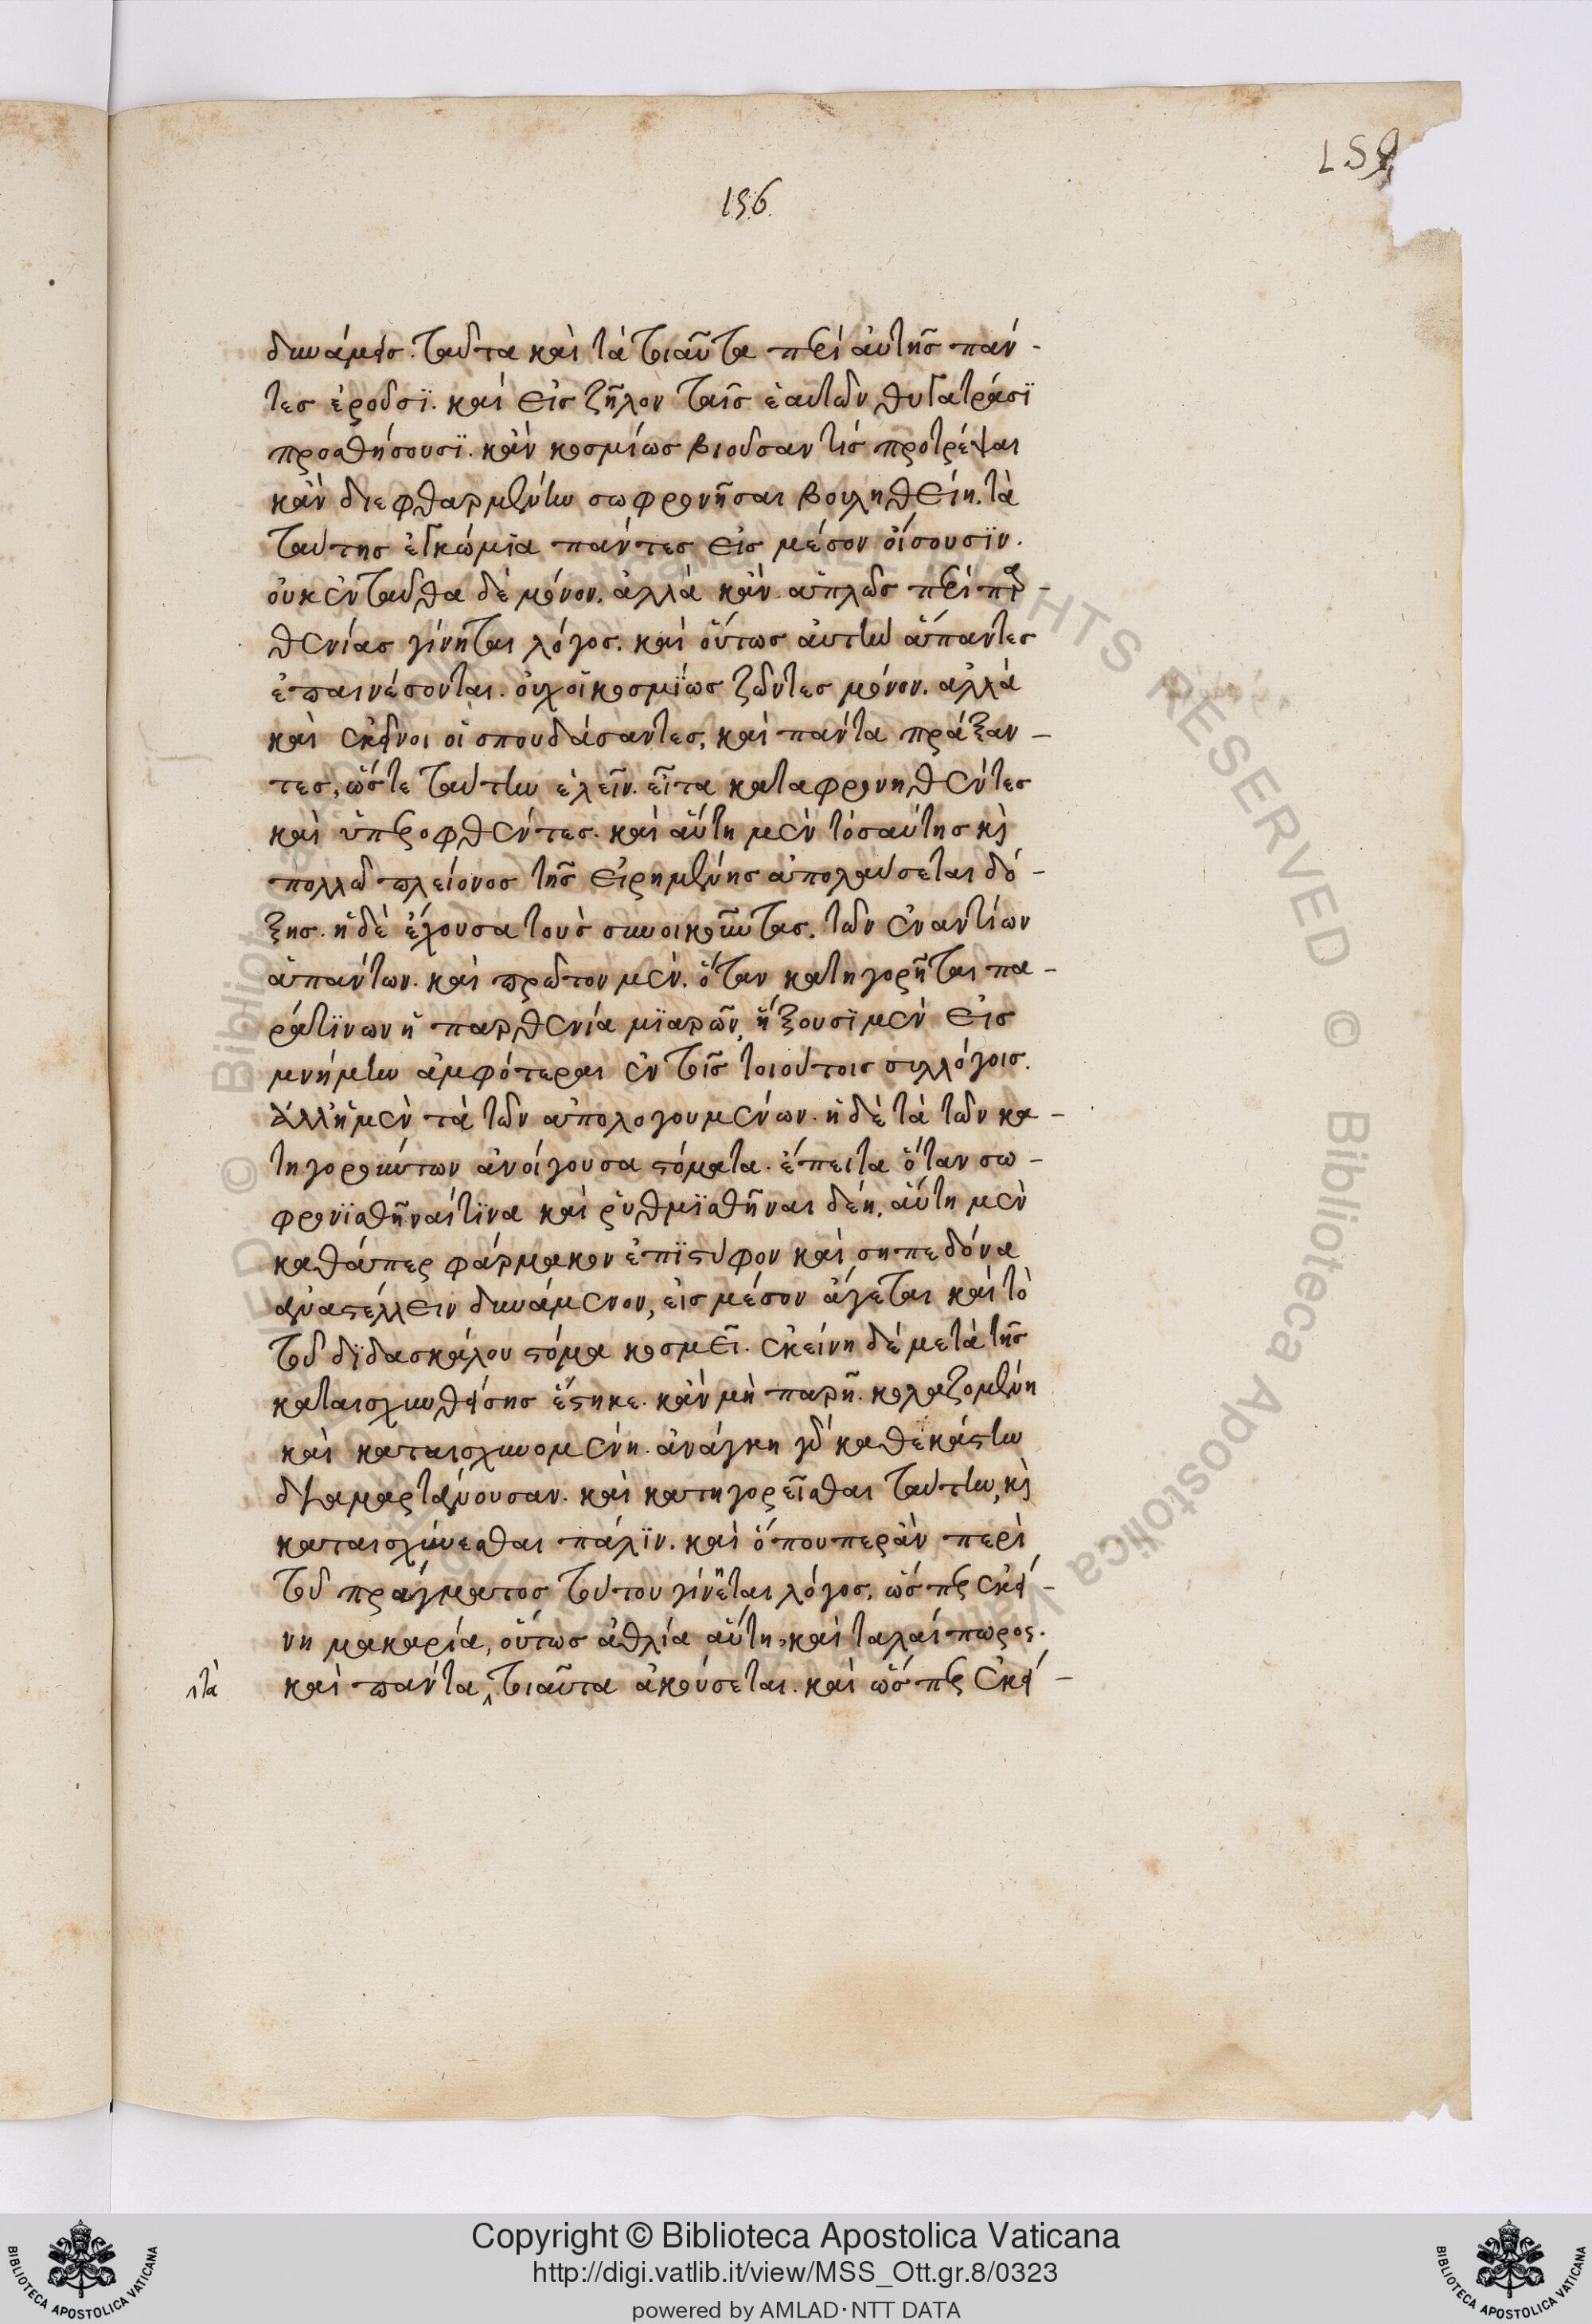 159
156
δυνάμεις. ταῦτα καὶ τὰ τοιαῦτα περὶ αὐτῆς πάν-
τες ἐροῦσϊ. καὶ εἰς ζῆλον ταῖς ἑαυτῶν θυγατράσϊ
προσθήσουσϊ. κἂν κοσμίως βιοῦσαν τὶς προτρέψαι
κἂν διεφθαρμένην σωφρονῆσαι βουληθείη. τὰ
ταύτης ἐγκώμϊα πάντες εἰς μέσον οἴσουσϊν.
οὐκ ἐνταῦθα δὲ μόνον. ἀλλὰ κἂν ἁπλῶς περὶ παρ-
θενίας γίνηται λόγος. καὶ οὕτως αὐτὴν ἅπαντες
ἐπαινέσονται. οὐχ οἱ κοσμϊως ζῶντες μόνον. ἀλλὰ
καὶ ἐκεῖνοι οἱ σπουδάσαντες, καὶ πάντα πράξαν-
τες, ὥστε ταύτην ἑλεῖν. εἶτα καταφρονηθέντες
καὶ ὑπεροφθέντες. καὶ αὕτη μὲν τοσαύτης κὶ
πολλῶ πλείονος τῆς εἰρημένης ἀπολαύσεται δό-
ξης. ἡ δὲ ἔχουσα τοὺς συνοικοῦντας. τῶν ἐναντίων
ἁπάντων. καὶ πρῶτον μὲν. ὅταν κατηγορῆται πα-
ράτϊνων ἡ παρθενία μϊαρῶν, ἥξουσϊ μὲν εἰς
μνήμην ἀμφότεραι ἐν τοῖς τοιούτοις συλλόγοις.
Ἀλλ' ἡ μὲν τὰ τῶν ἀπολογουμένων. ἡ δὲ τὰ τῶν κα-
τηγορούντων ἀνοίγουσα στόματα. ἔπειτα ὅταν σω-
φρονϊσθῆναί τϊνα καὶ ῥυθμϊσθῆναι δέη. αὕτη μὲν
καθάπερ φάρμακον ἐπϊστύφον καὶ σηπεδόνα
ἀναστέλλειν δυνάμενον, εἰς μέσον ἄγεται καὶ τὸ
τοῦ δϊδασκάλου στόμα κοσμεῖ. ἐκείνη δὲ μετὰ τῆς
καταισχυνθείσης ἕστηκε. κἂν μὴ παρῆ. κολαζομένη
καὶ καταισχυνομένη. ἀνάγκη γὰρ καθ' ἑκάστην
διαμαρτάνουσαν. καὶ κατηγορεῖσθαι ταύτην, κὶ
καταισχύνεσθαι πάλϊν. καὶ ὅπουπερ ἂν περὶ
τοῦ πράγματος τούτου γίνηται λόγος, ὥσπερ ἐκεί-
νη μακαρία, οὕτως ἀθλία αὕτη, καὶ ταλαίπωρος.
τὰ
καὶ πάντα τοιαῦτα ἀκούσεται. καὶ ὥσπερ ἐκεί-
Copyright © Biblioteca Apostolica Vaticana
http://digi.vatlib.it/view/MSS_Ott.gr.8/0323
powered by AMLAD·NTT DATA